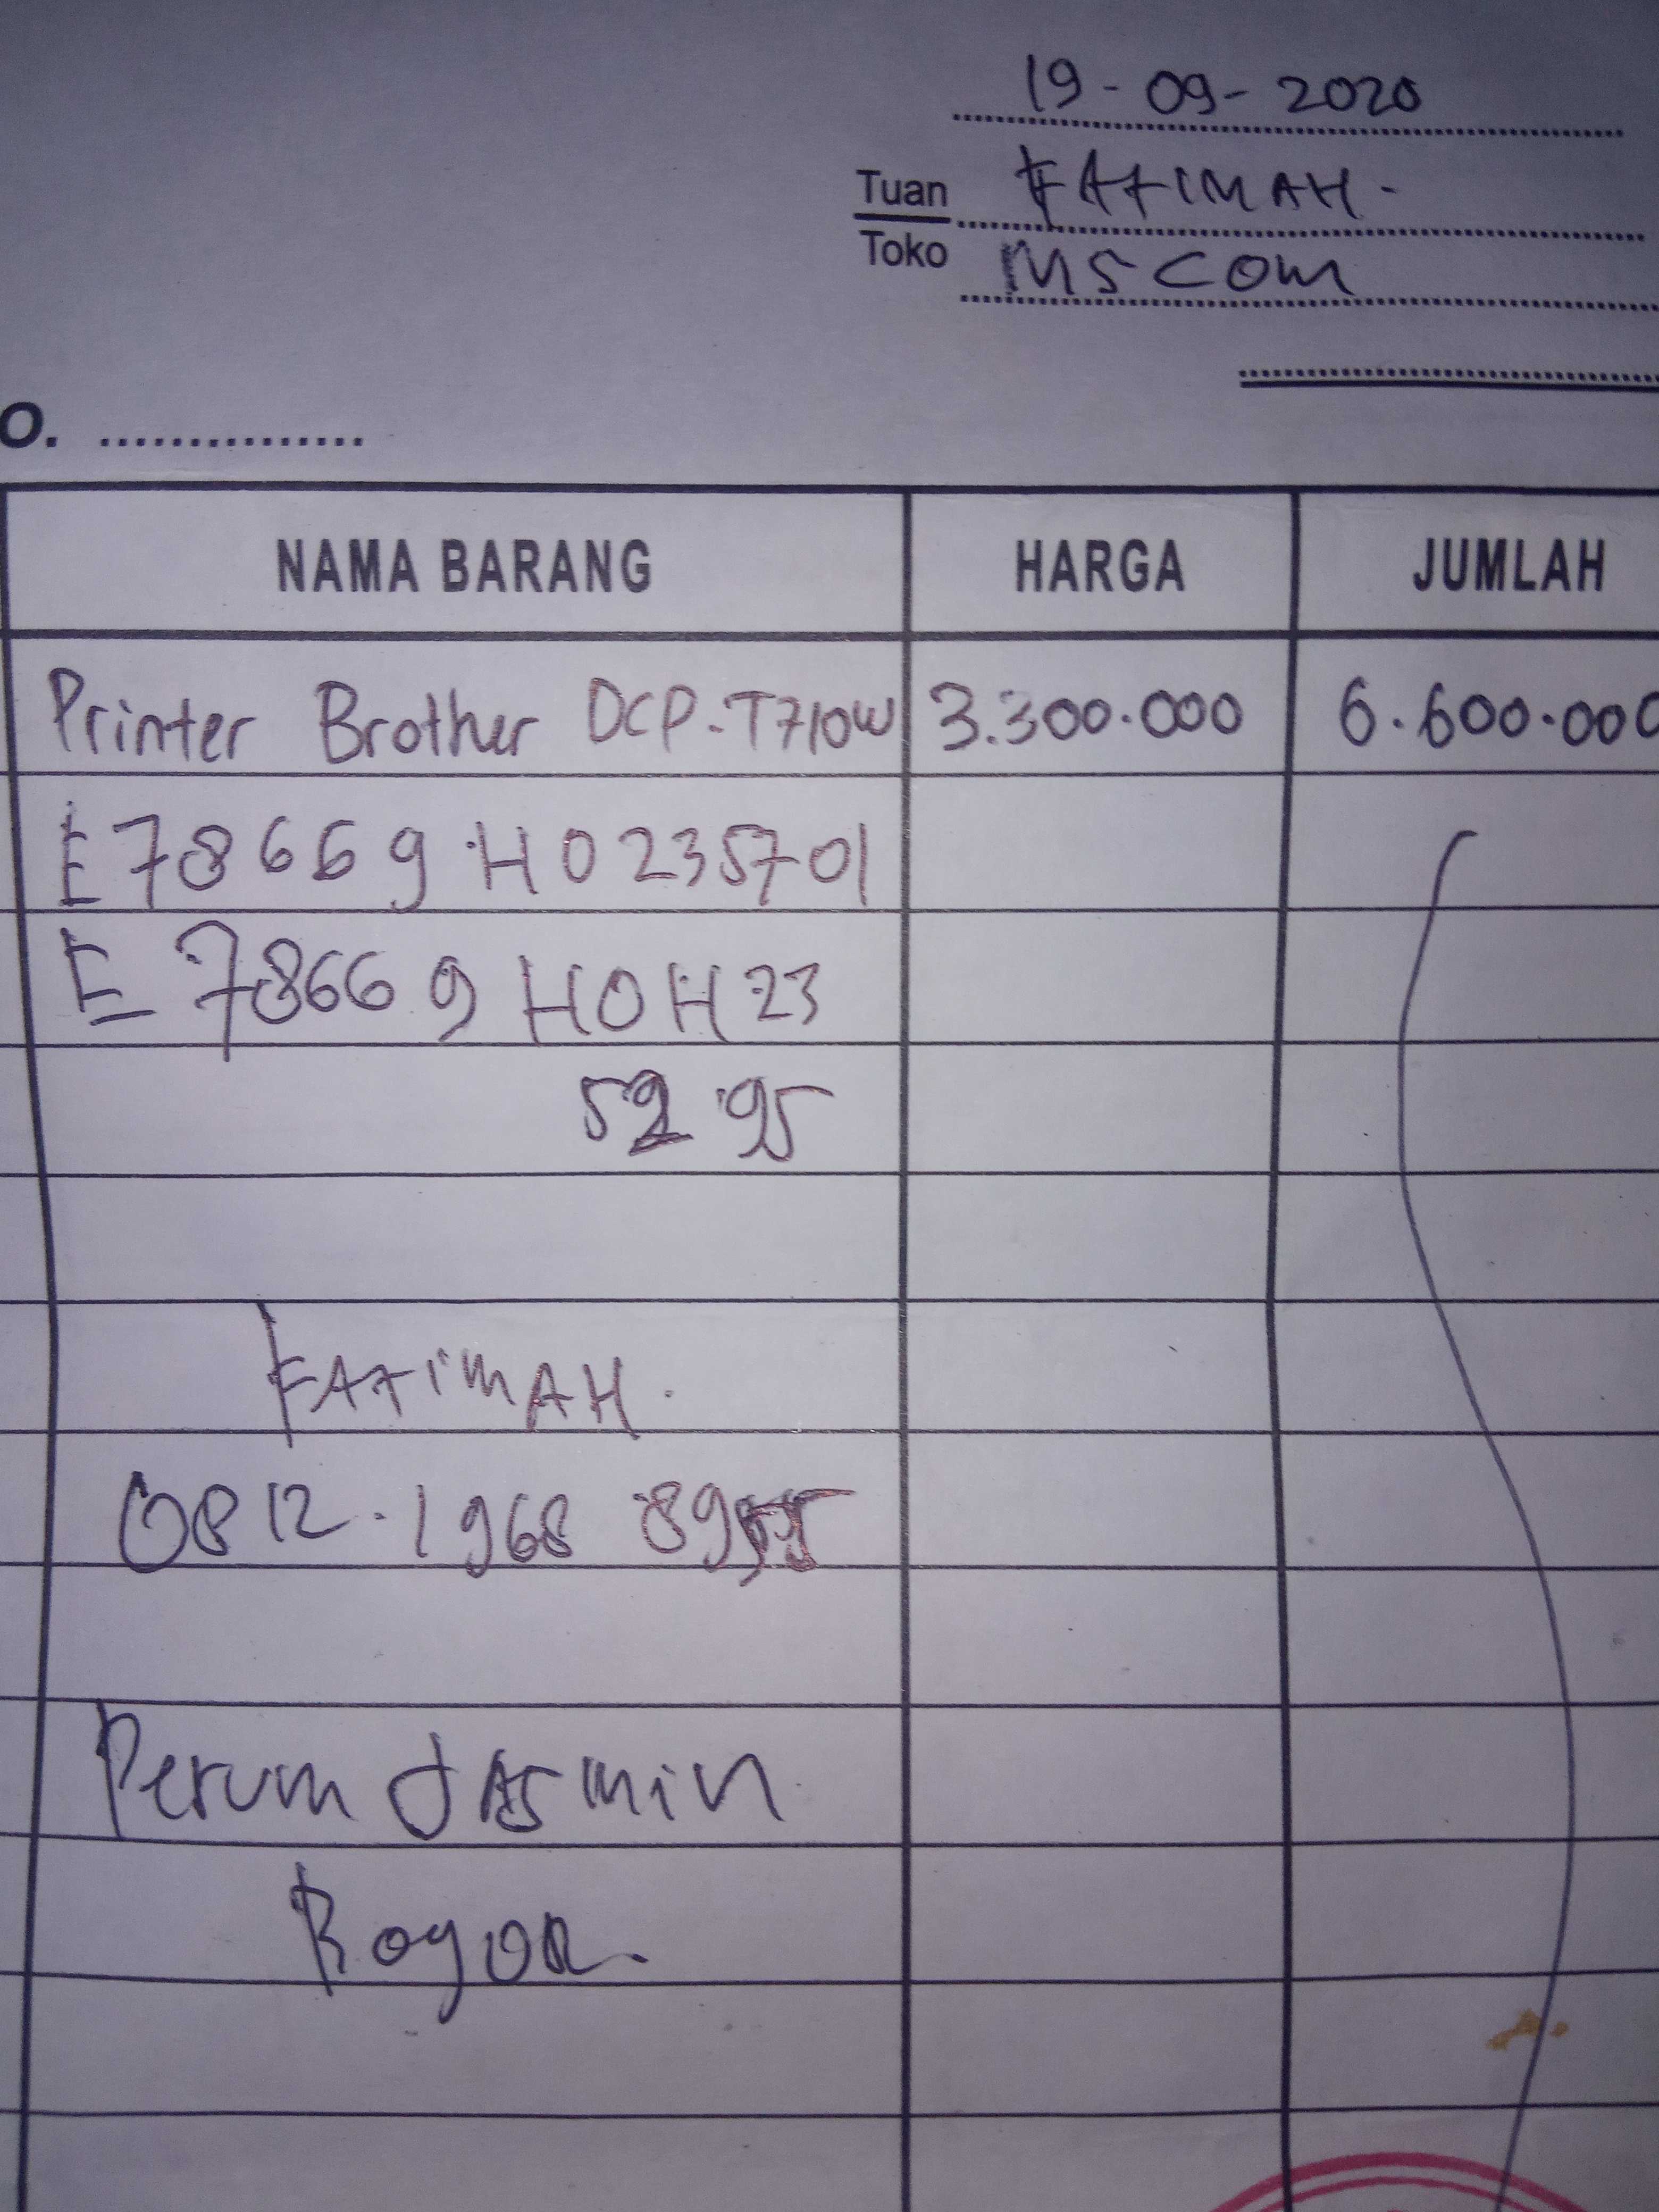 19-09-2020
Tuan FATIMAH-
Toko MSCOM
O. ...............
NAMA BARANG HARGA JUMLAH
Printer Brother DCP-T710W 3.300.000 6.600.000
E78669H0235701
E78669H0H23
5295
FATIMAH.
0812.1968
Perum JASmin
Bogor.